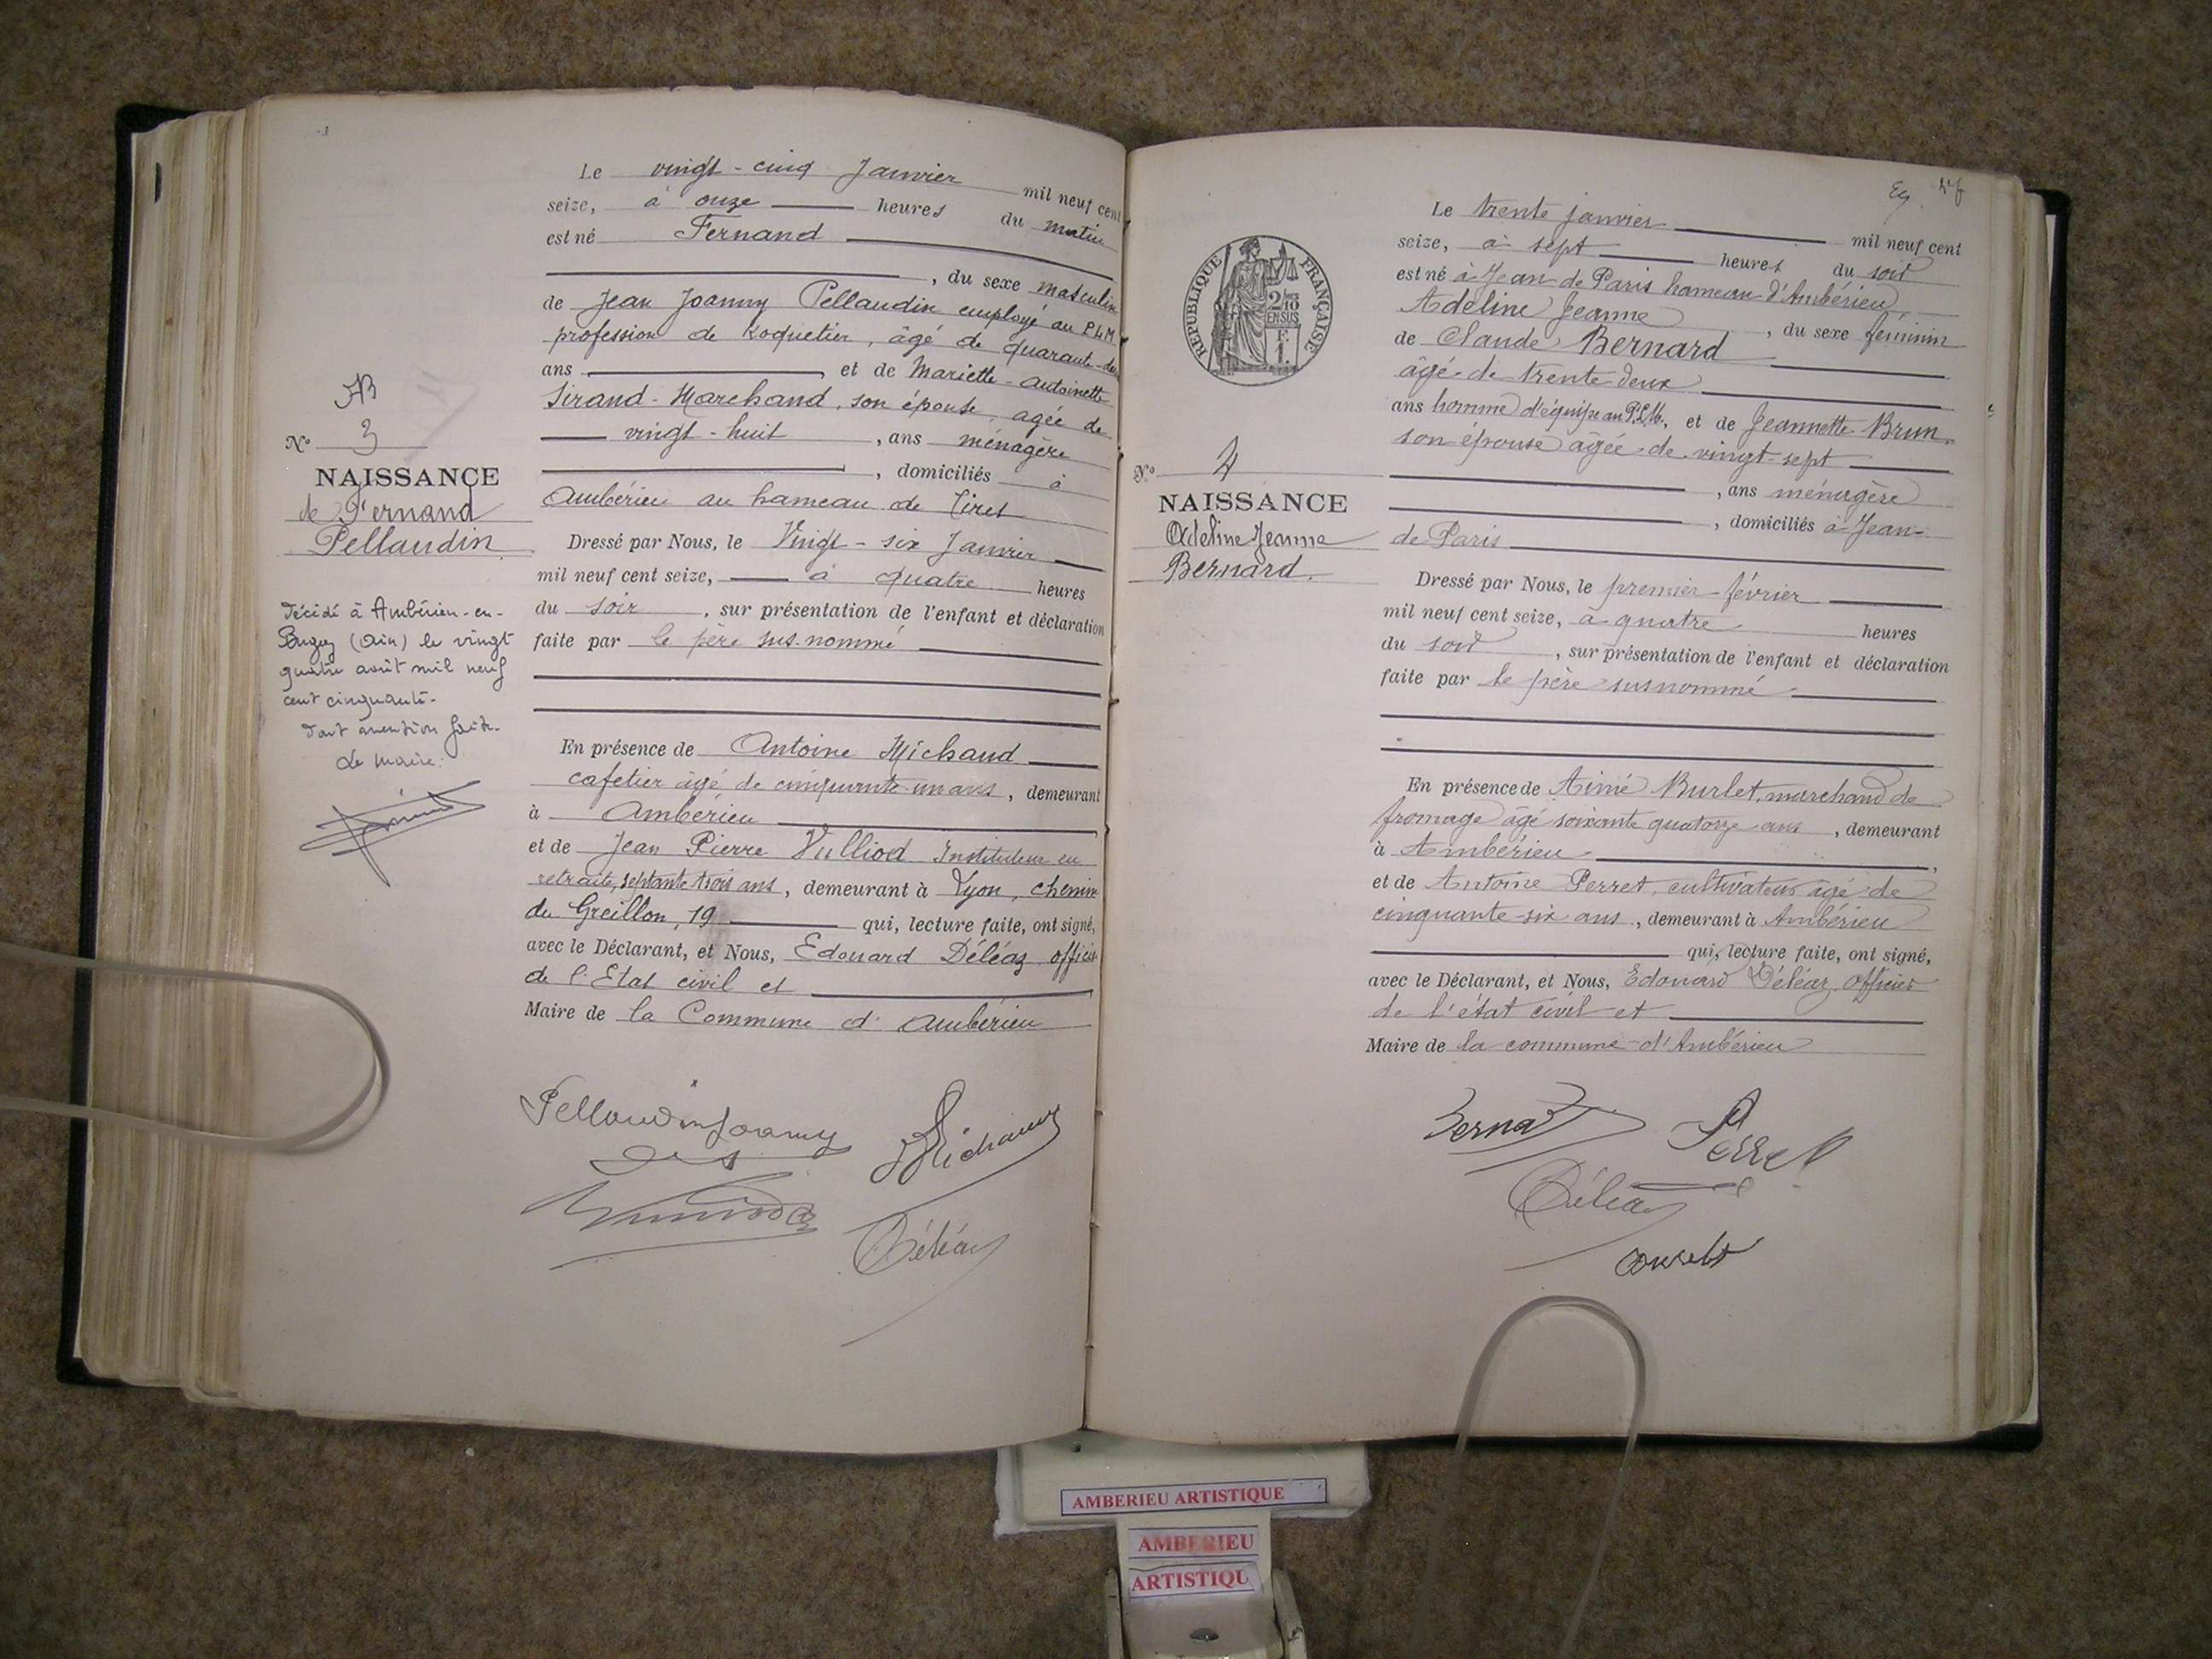 Le vingt-cinq Janvier mil neuf cent
seize, à onze heures du matin
est né Fernand
, du sexe masculin
de Jean Joanny Pellaudin employé au P.L.M
profession de Roquetier, âgé de quarante-deux
ans et de Mariette-Antoinette
Sirand-Marchand, son épouse, agée de
vingt-huit , ans ménagère
, domiciliés à
Ambérieu au hameau de Tiret
Dressé par Nous, le Vingt-six Janvier
mil neuf cent seize, à quatre heures
du soir , sur présentation de l'enfant et déclaration
faite par le père sus-nommé
En présence de Antoine Michaud
cafetier âgé de cinquante-un ans , demeurant
à Ambérieu
et de Jean Pierre Vulliod Instituteur en
retraite, septante trois ans , demeurant à Lyon, chemin
du Greillon, 19 qui, lecture faite, ont signé,
avec le Déclarant, et Nous, Edouard Déléaz officier
de l'Etat civil et
Maire de la Commune d'Ambérieu
Pellaudin Joanny
Michaud
Déléaz
N° 3
NAISSANCE
de Fernand
Pellaudin
Décédé à Ambérieu-en-
Bugey (Ain) le vingt
quatre août mil neuf
cent cinquante-
Dont mention faite.
Le maire:
Le trente janvier mil neuf cent
seize, à sept heures du soir
est né à Jean de Paris hameau d'Ambérieu
Adeline Jeanne , du sexe féminin
de Claude Bernard
âgé de trente deux
ans homme d'équipe au P.L.M., et de Jeannette Brun
son épouse âgée de vingt-sept
, ans ménagère
, domiciliés à Jean-
de Paris
Dressé par Nous, le premier février
mil neuf cent seize, à quatre heures
du soir , sur présentation de l'enfant et déclaration
faite par le père susnommé
En présence de Aimé Burlet, marchand de
fromage âgé soixante quatorze ans , demeurant
à Ambérieu ,
et de Antoine Perret, cultivateur âgé de
cinquante-six ans , demeurant à Ambérieu
qui, lecture faite, ont signé,
avec le Déclarant, et Nous, Edouard Déléaz, officier
de l'état civil et
Maire de la commune d'Ambérieu
Bernard
Perret
Déléaz
RÉPUBLIQUE FRANÇAISE
N° 4
NAISSANCE
Adeline Jeanne
Bernard.
AMBERIEU ARTISTIQUE
AMBERIEU
ARTISTIQU